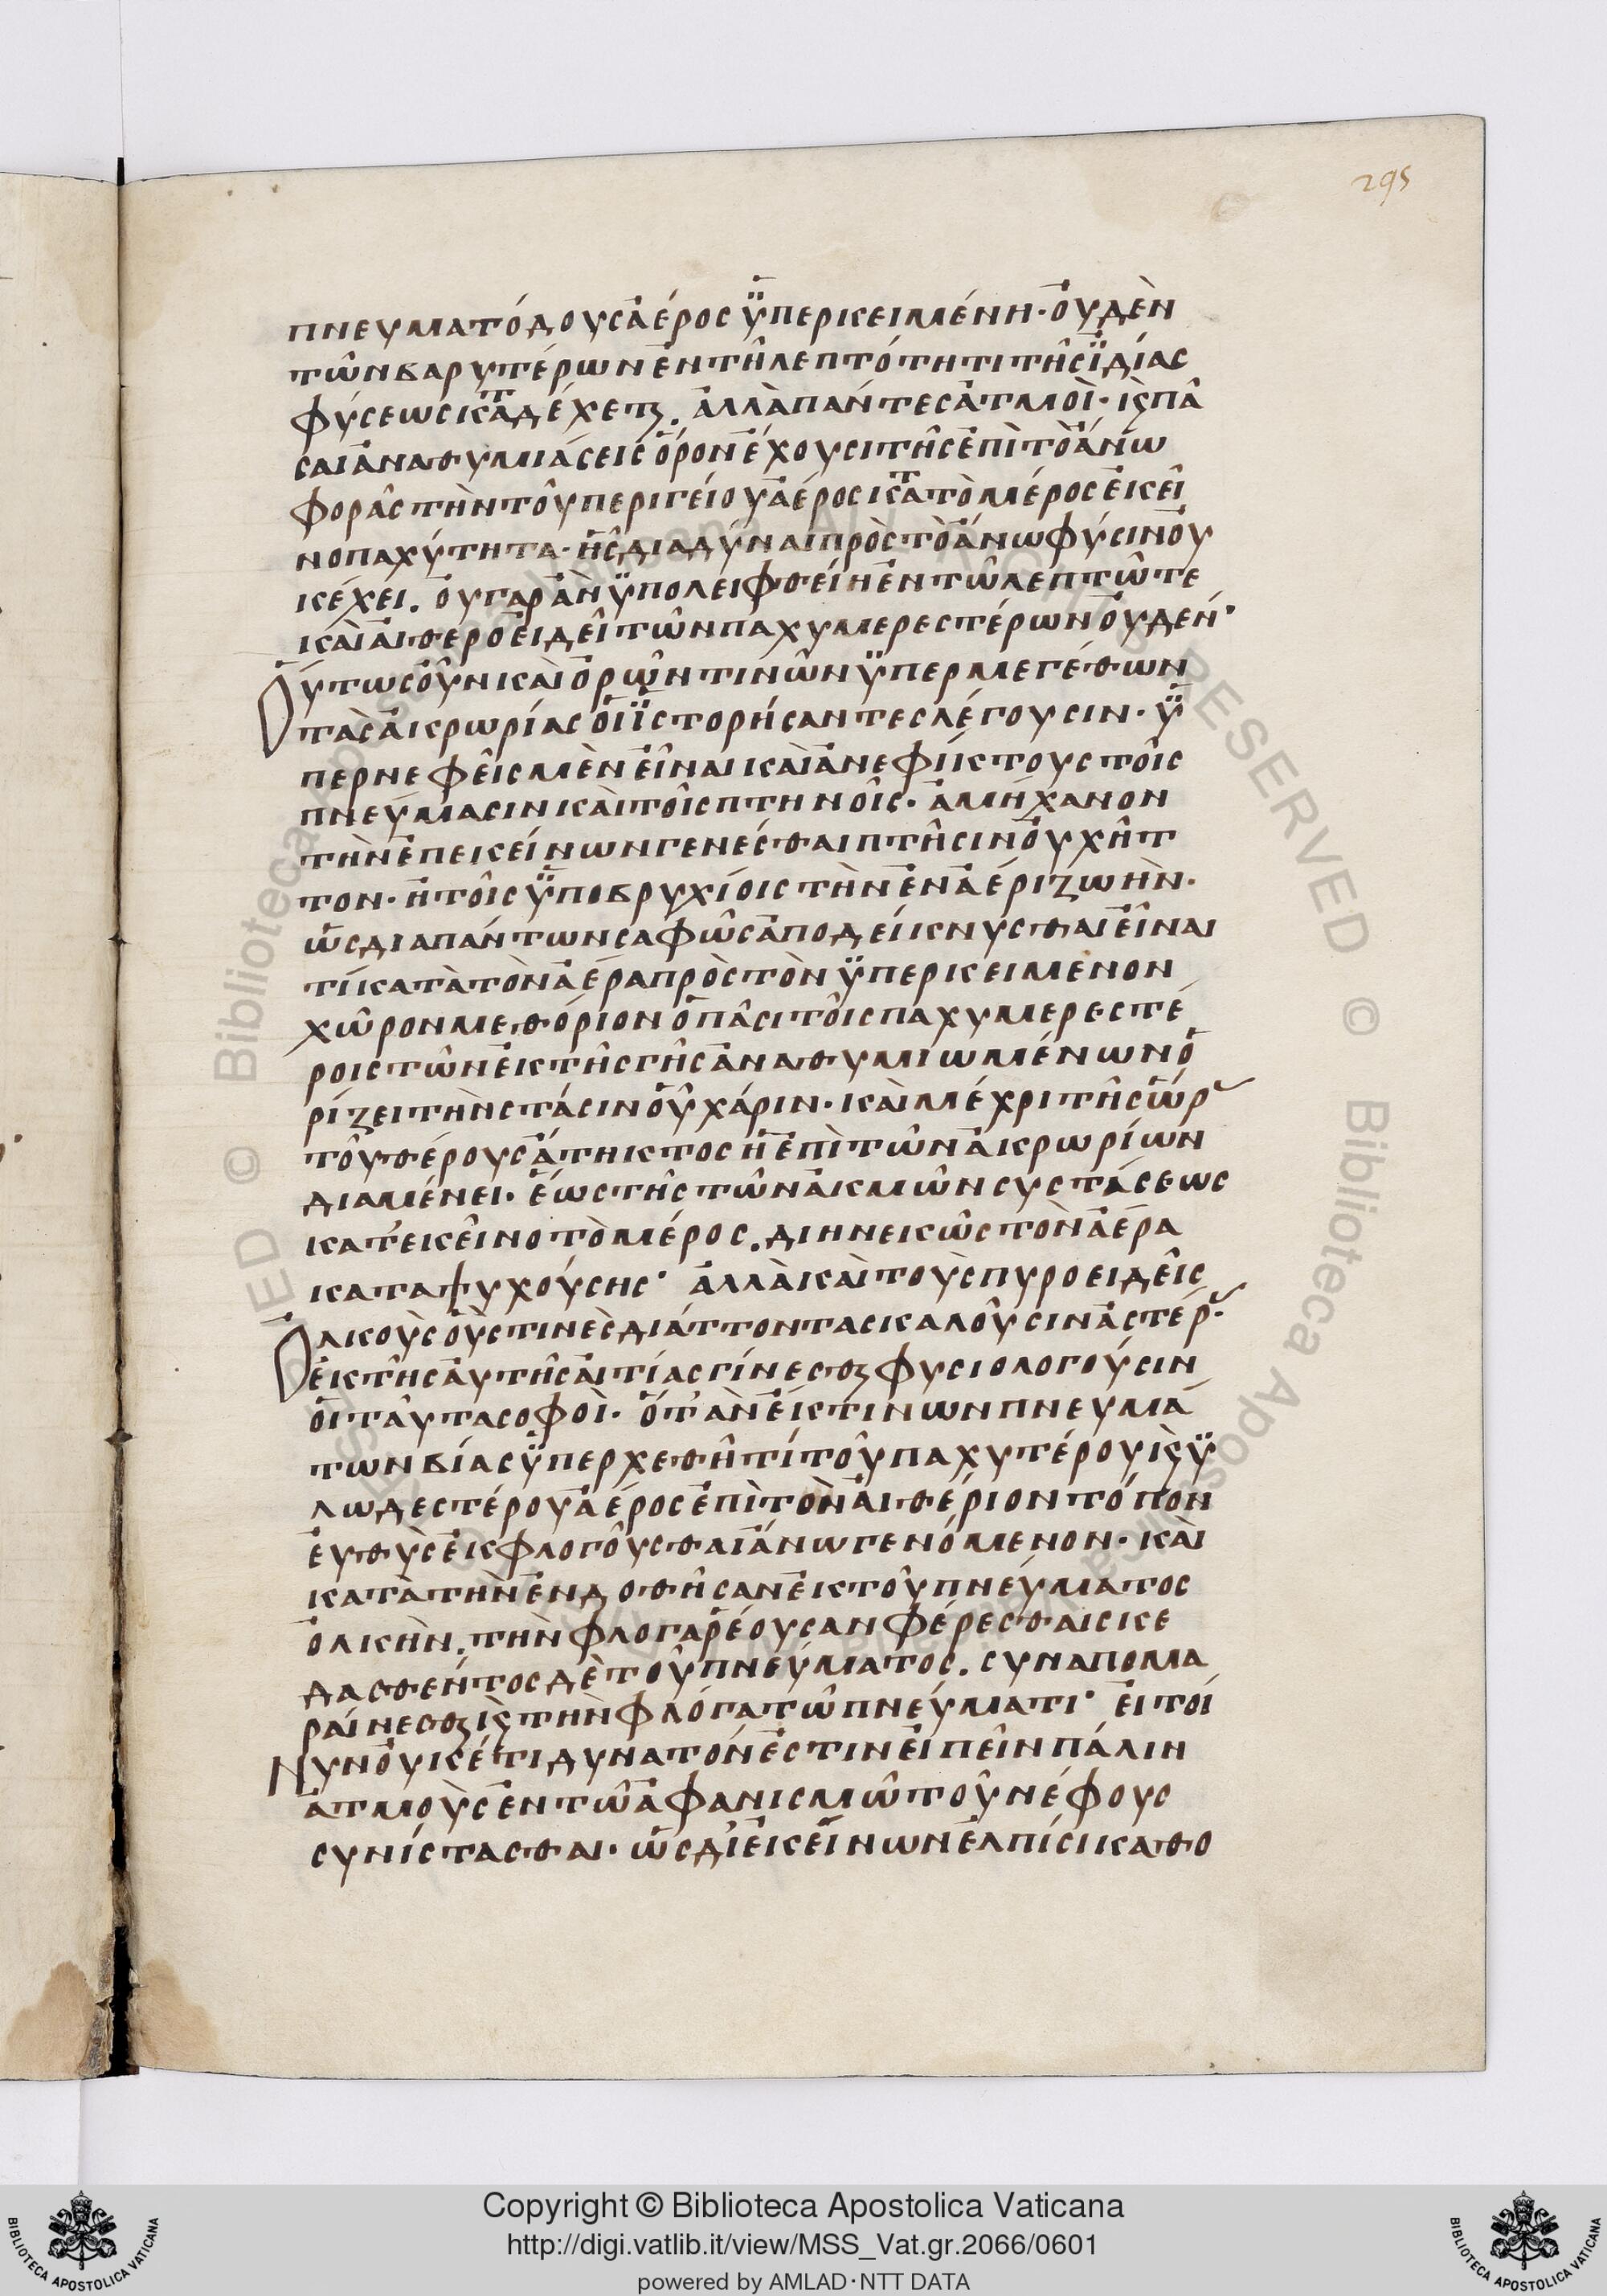 295
πνευματόδους ἀέρος ὑπερκειμένη· οὐδὲν
τῶν βαρυτέρων ἐν τῆ λεπτότητι τῆς ἰδίας
φύσεως κατ̅αδέχετϗ. ἀλλὰ πάντες ἀτμοὶ· ϗ πᾶ
σαι ἀναθυμιάσεις ὅρον ἔχουσι τῆς ἐπὶ τὸ ἄνω
φορᾶς τὴν τοῦ περιγείου ἀέρος κατὰ τὸ μέρος ἐκεῖ
νο παχύτητα· ἧς διαδύναι πρὸς τὸ ἄνω φύσιν οὐ
κ έχει. οὐ γαρ ἂν ὑπολειφθείη ἐν τῶ λεπτῶ τε
καὶ αἰθεροειδεῖ τῶν παχυμερεστέρων οὐδέν·
Οὕτως οὖν καὶ ὀρῶν τινῶν ὑπερμεγέθων
τὰς ἀκρωρίας οἱ ἱστορήσαντες λέγουσιν· ὑ
περνεφεῖς μὲν εἶναι καὶ ἀνεφίκτους τοῖς
πνεύμασιν καὶ τοῖς πτηνοῖς· ἀμήχανον
τὴν ἐπ εκείνων γενέσθαι πτῆσιν οὐχ ῆτ
τον· ἢ τοῖς ὑποβρυχίοις τὴν ἐν ἀέρι ζωὴν·
ὡς δια πάντων σαφῶς ἀποδείκνυσθαι εἶναι
τί κατὰ τὸν ἀέρα πρὸς τὸν ὑπερκείμενον
χῶρον μεθόριον ὃ πᾶσι τοῖς παχυμερεστέ
ροις τῶν ἐκ τῆς γῆς ἀναθυμιωμένων ὁ
ρίζει τὴν στάσιν οὗ χάριν· καὶ μέχρι τῆς ὥρ
τοῦ θέρους ἄτηκτος ἡ ἐπὶ τῶν ἀκρωρίων
διαμένει· ἕως τῆς τῶν ἀκμῶν συστάσεως
κατ' εκεῖνο τὸ μέρος. διηνεκῶς τὸν ἀέρα
καταψυχούσης· ἀλλὰ καὶ τοὺς πυροειδεῖς
Ὁλκοὺς οὓς τινὲς διάττοντας καλοῦσιν ἀστέρ·
ἐκ τῆς αὐτῆς αἰτίας γίνεσθϗ φυσιολογούσιν
οἱ ταῦτα σοφοὶ· ὅτ' ἂν ἔκ τινων πνευμά
των βίας ὑπερχεθῆ τί τοῦ παχυτέρου ϗ ὑ
λωδεστέρου ἀέρος ἐπὶ τὸν αἰθέριον τόπον
εὐθὺς ἐκφλογοῦσθαι ἄνω γενόμενον· καὶ
κατὰ τὴν ἐνδοθῆσαν ἐκ τοῦ πνεύματος
ὁλκὴν. τὴν φλογα ῥέουσαν φέρεσθαι σκε
δασθέντος δὲ τοῦ πνεύματος. συναπομα
ραίνεσθϗ ϗ τὴν φλόγα τῶ πνεύματι· εἰ τοί
Νυν οὐκ έτι δυνατόν ἐστιν εἰπεῖν πάλιν
ἀτμοὺς ἐν τῶ ἀφανισμῶ τοῦ νέφους
συνίστασθαι· ὡς δι' ἐκείνων ἐλπίσι καθο
Copyright © Biblioteca Apostolica Vaticana
http://digi.vatlib.it/view/MSS_Vat.gr.2066/0601
powered by AMLAD·NTT DATA